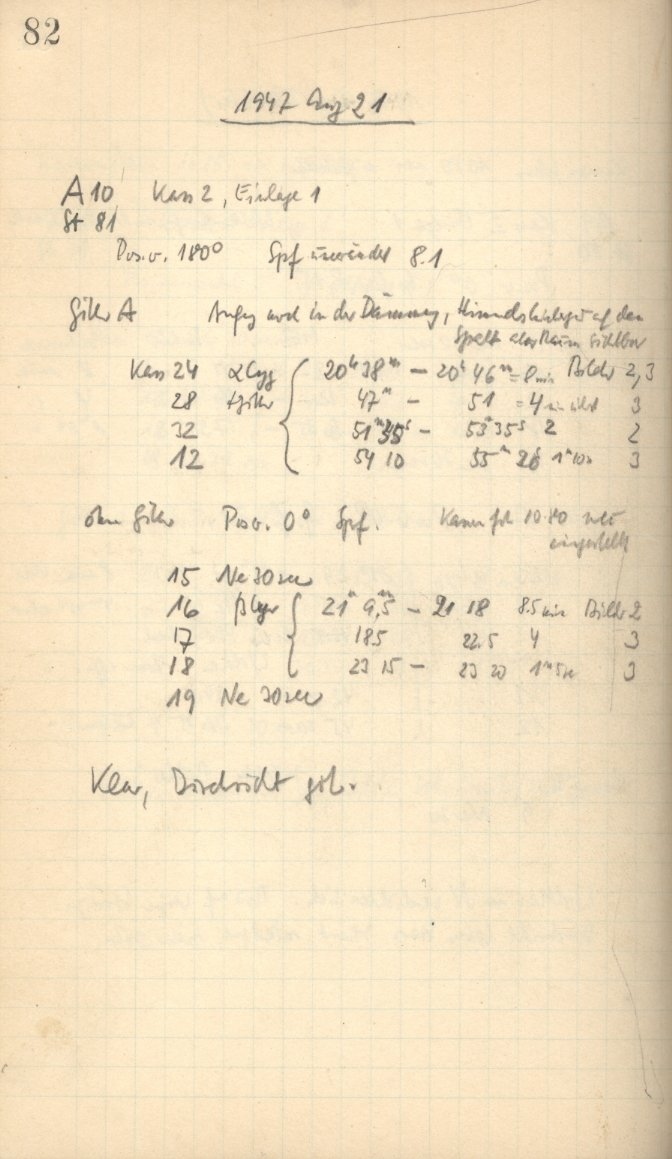 82
1947 Aug 21
A 10 Kass 2, Einlage 1
St 81
Pos. v. 180° Spf 8.1
Gitter A Anfang noch in der Dämmerung, Himmels auf dem
Spalt sichtbar
Kass 24 α Cyg 20h 38m — 20h 46m = 8 min Bilder 2,3
28 + Gitter 47m — 51 = 4 min 3
32 51m 35s — 53m 35s 2 2
12 54 10 55m 20 1m 10s 3
ohne Gitter Pos v. 0° Spf. Kamera 10.80 neu
eingestellt
15 Ne 30 sec
16 β Lyr 21h 9,5m — 21 18 8.5 min Bilder 2
17 18.5 22.5 4 3
18 23 15 — 23 20 3
19 Ne 30 sec
Klar, Durchsicht gut.